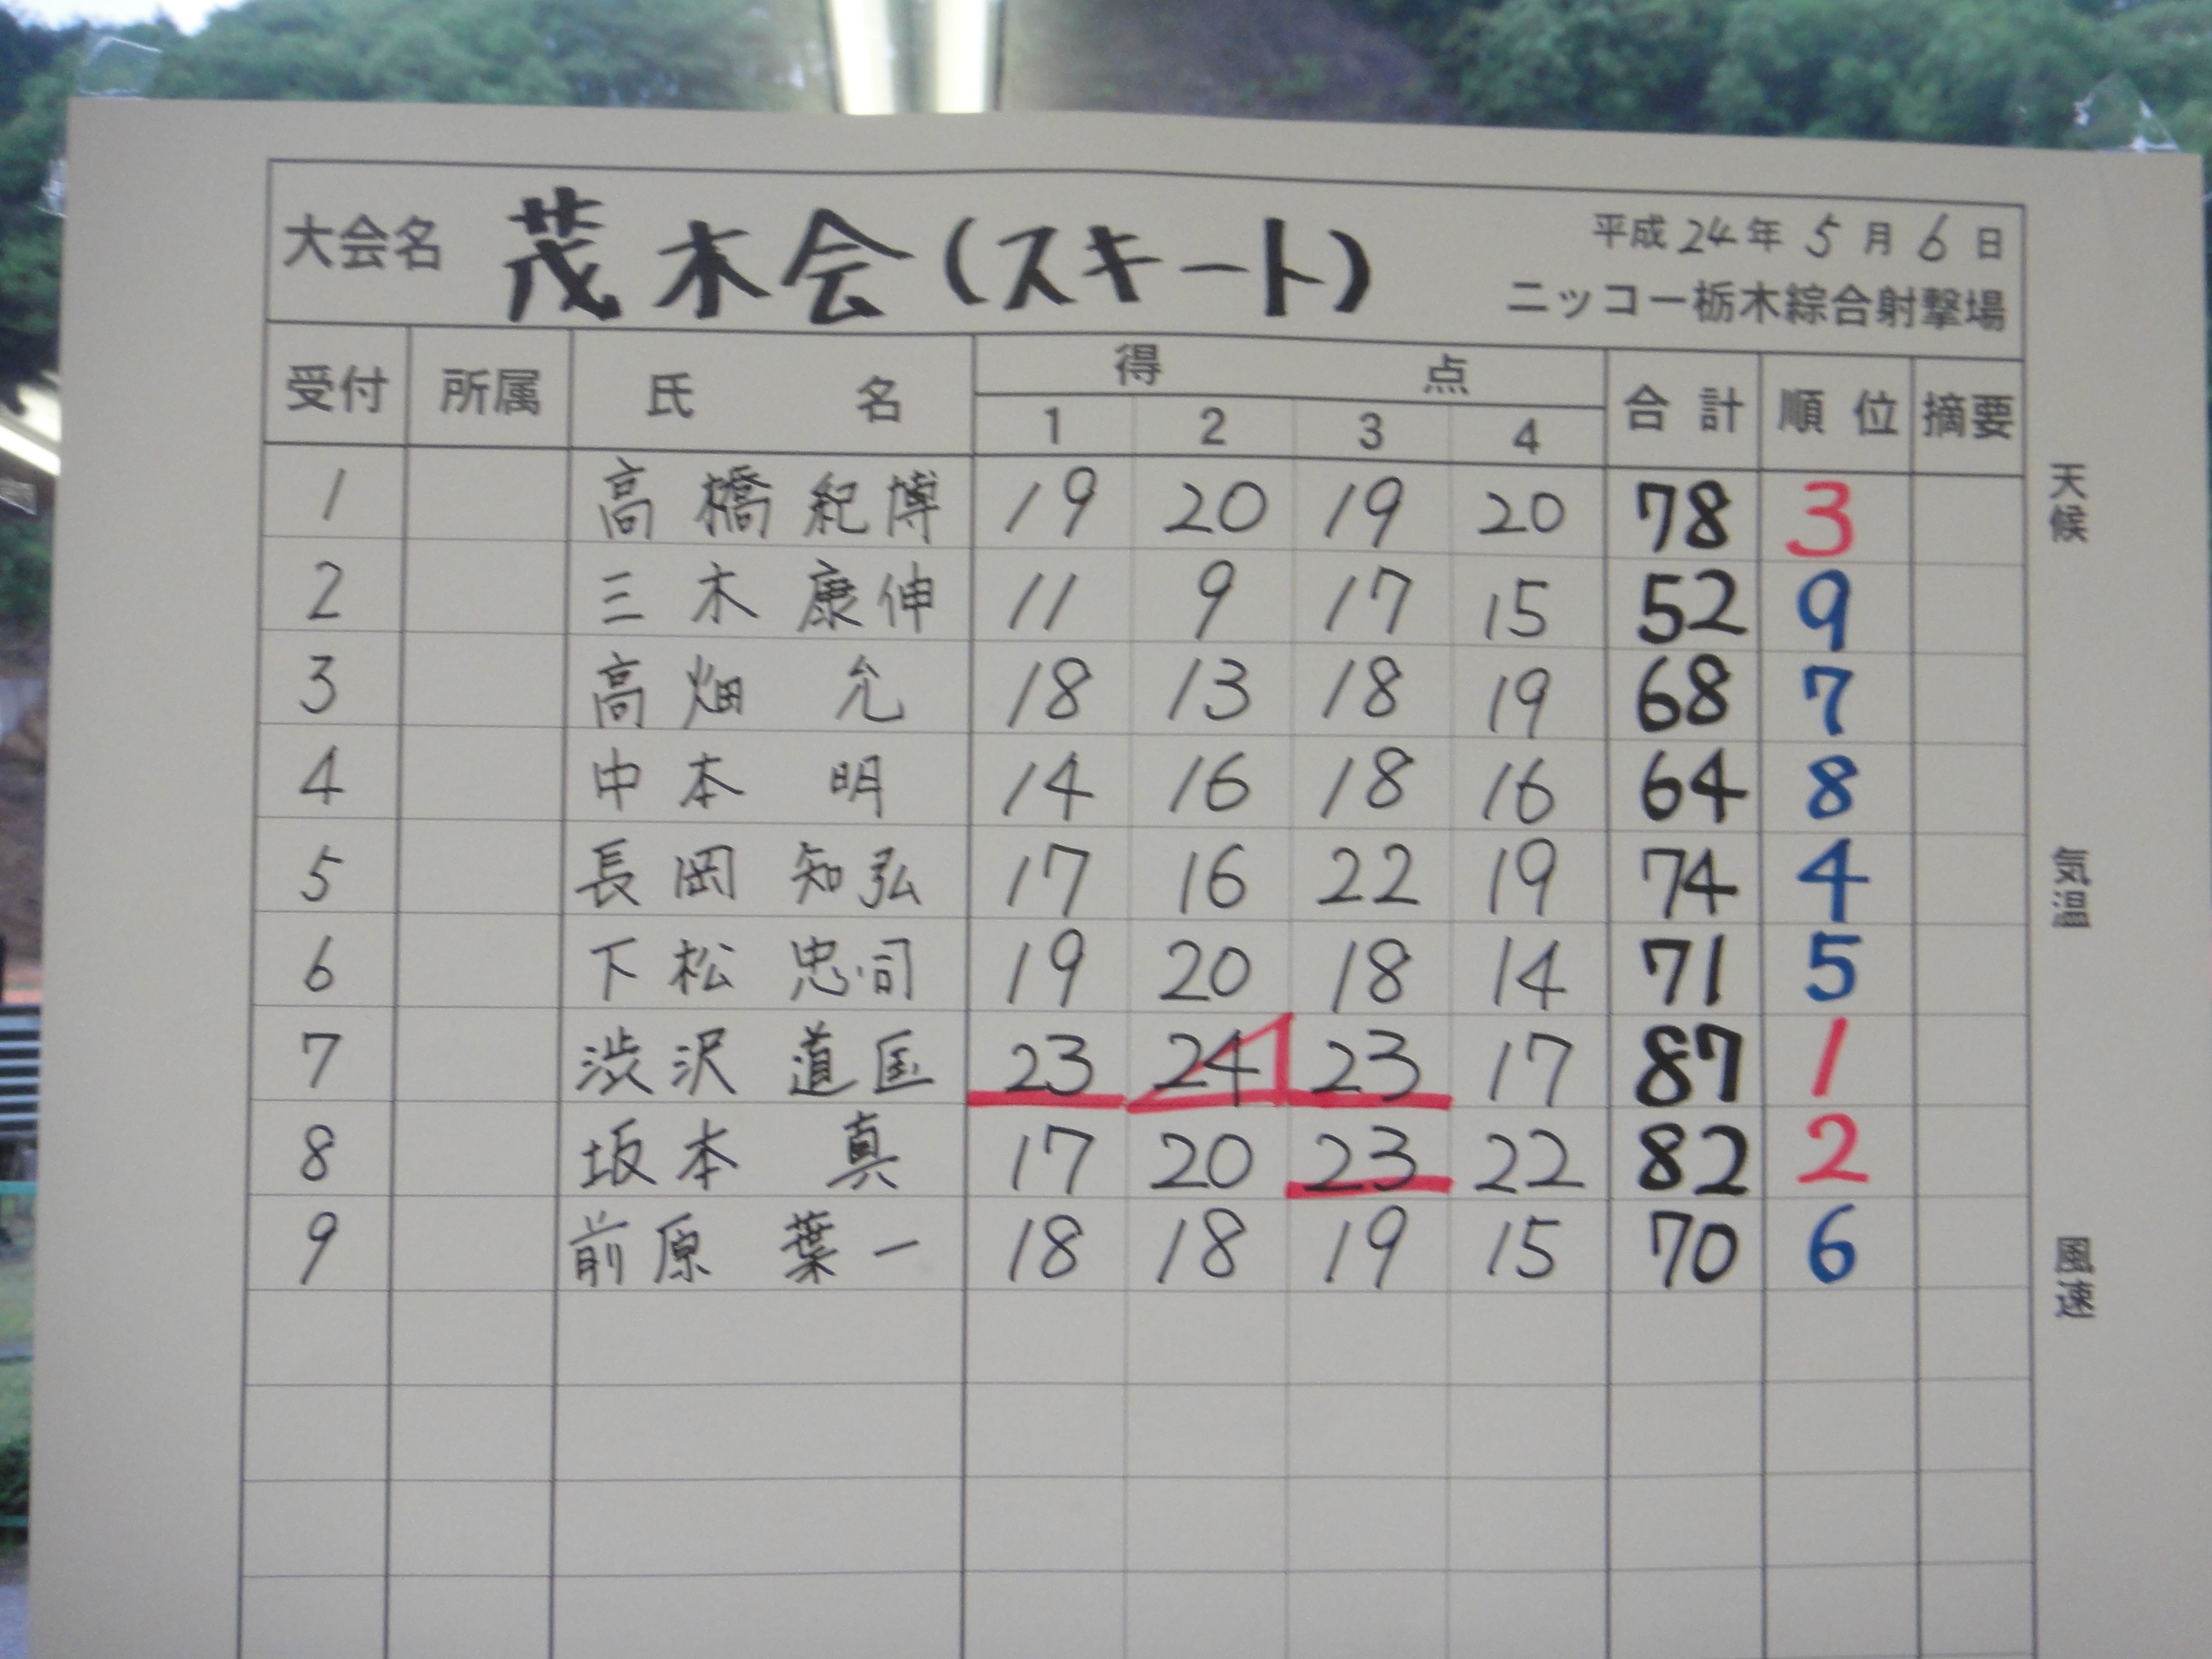 大会名 茂木会(スキート) 平成24年5月6日
ニッコー栃木綜合射撃場
受付 所属 氏名 得点 合計 順位 摘要
1 2 3 4
1 高橋紀博 19 20 19 20 78 3
2 三木康伸 11 9 17 15 52 9
3 高畑允 18 13 18 19 68 7
4 中本明 14 16 18 16 64 8
5 長岡知弘 17 16 22 19 74 4
6 下松忠司 19 20 18 14 71 5
7 渋沢道国 23 24 23 17 87 1
8 坂本真 17 20 23 22 82 2
9 前原葉一 18 18 19 15 70 6
天候
気温
風速